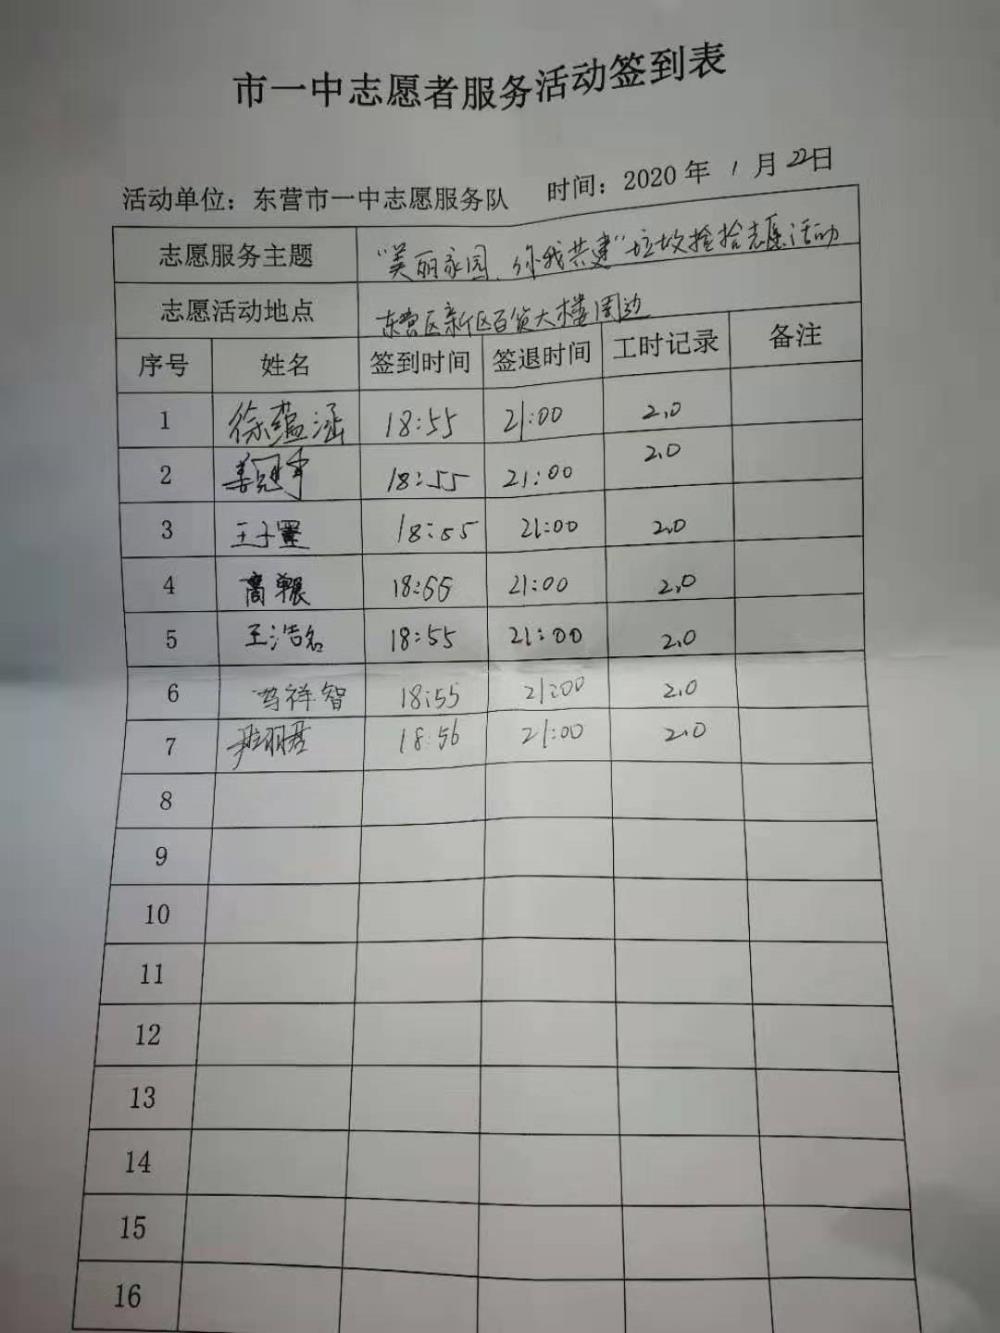 市一中志愿者服务活动签到表
活动单位：东营市一中志愿服务队 时间：2020 年 1 月 22日
志愿服务主题 “美丽家园，你我共建”垃圾捡拾志愿活动
志愿活动地点 东营区新区百货大楼周边
序号 姓名 签到时间 签退时间 工时记录 备注
1 徐蕴涵 18:55 21:00 2.0
2 姜冠宇 18:55 21:00 2.0
3 王子墨 18:55 21:00 2.0
4 高 18:55 21:00 2.0
5 王浩名 18:55 21:00 2.0
6 祥智 18:55 21:00 2.0
7 18:56 21:00 2.0
8
9
10
11
12
13
14
15
16